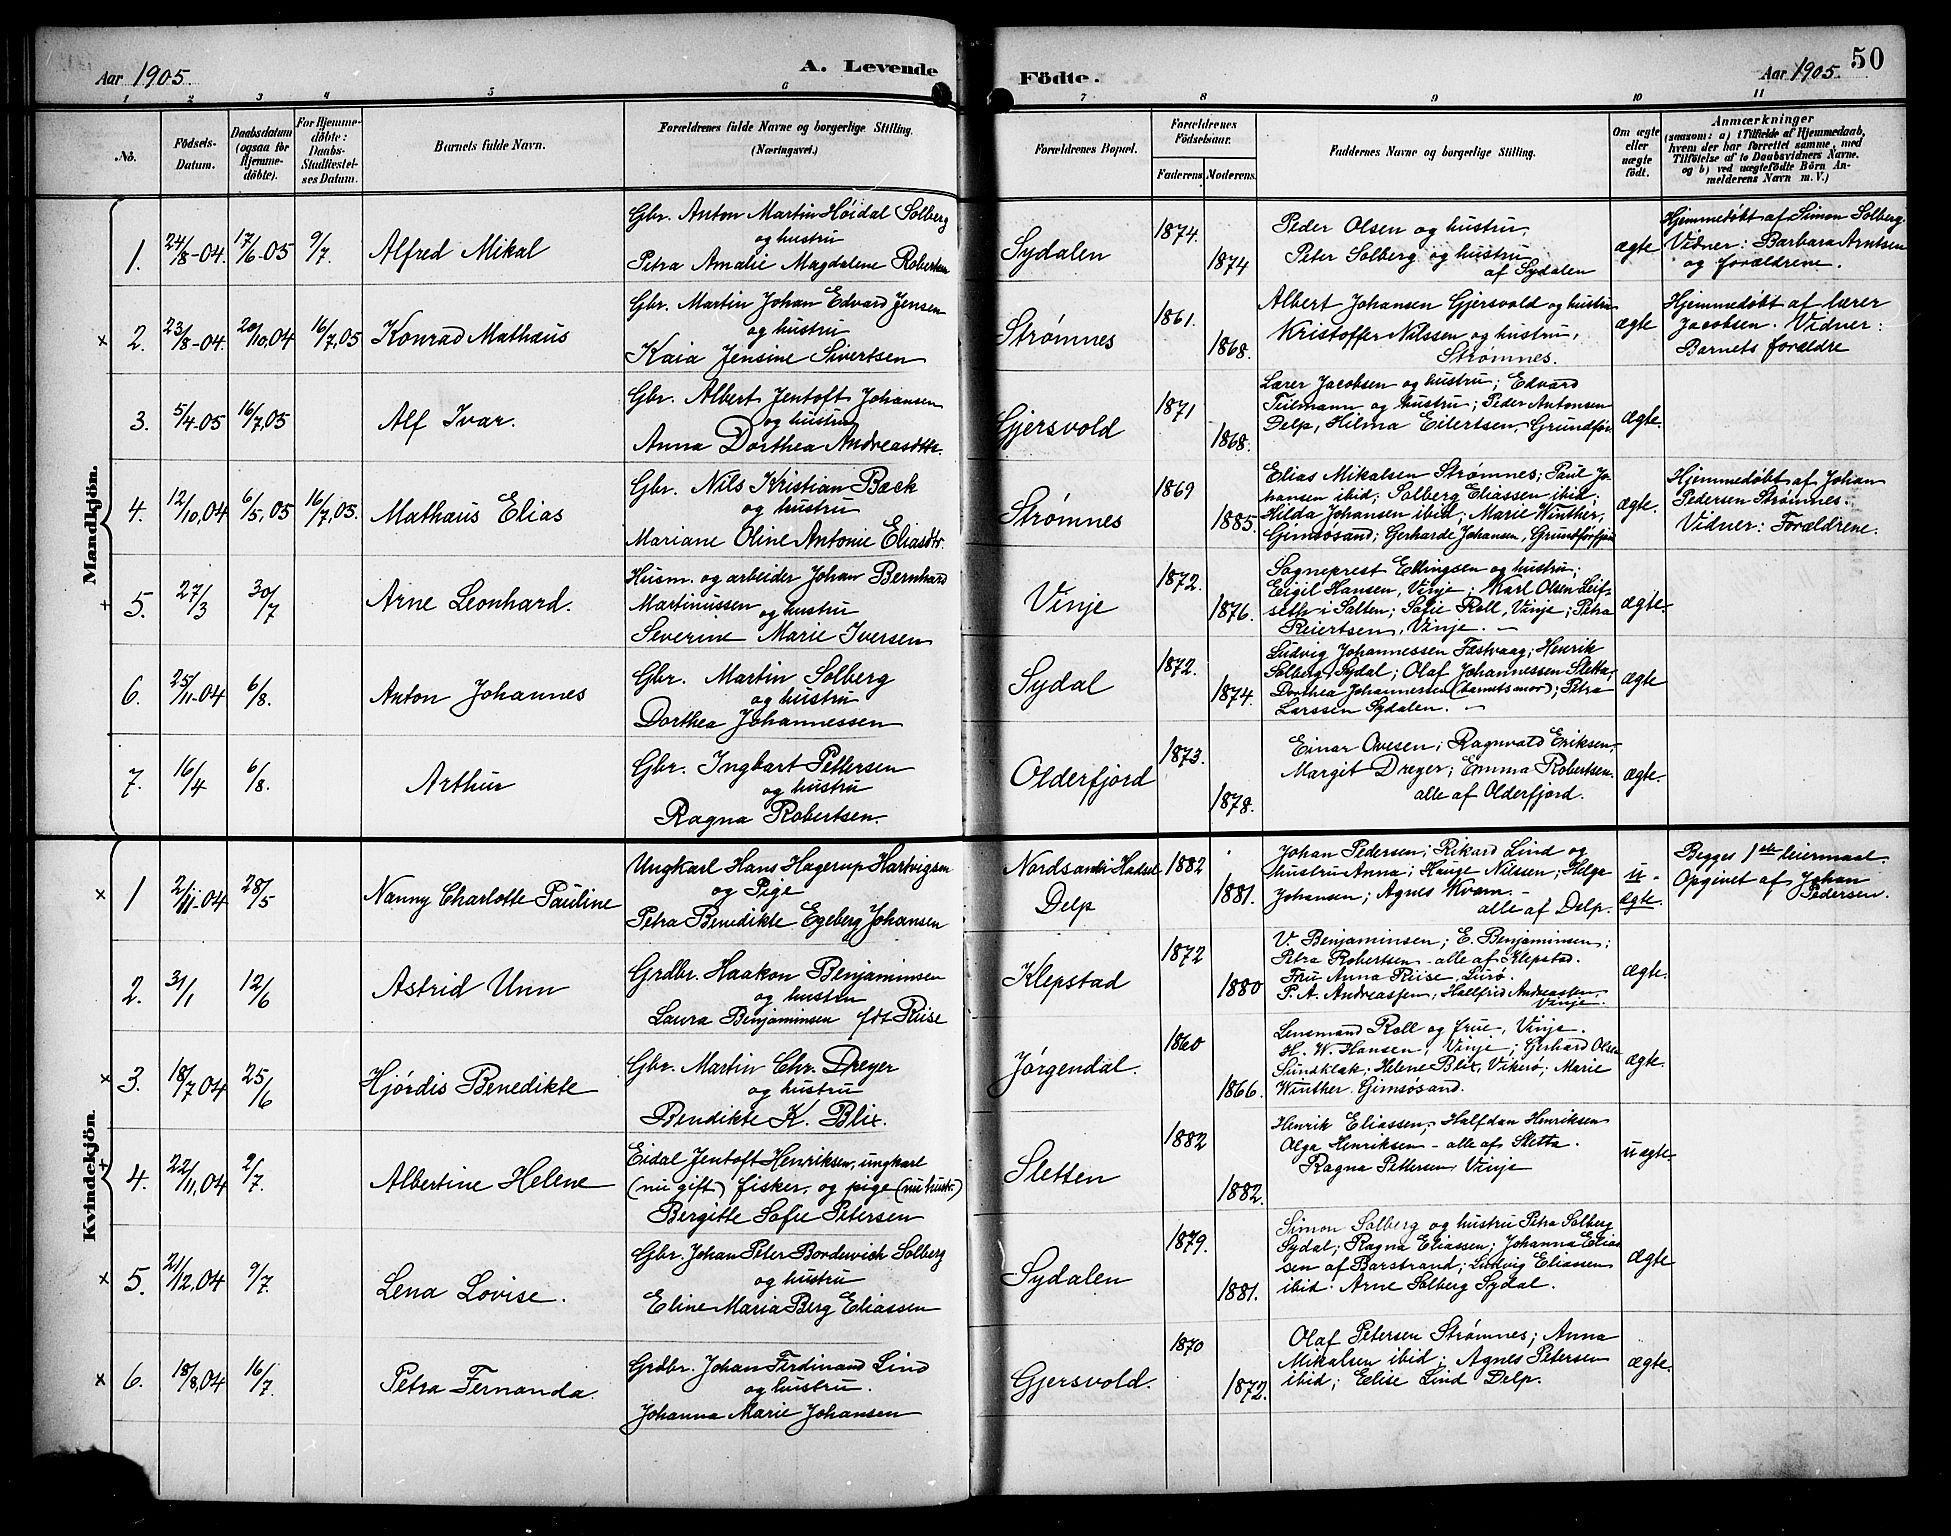 Aar 1905. A. Levende Födte. Aar 1905. 50
1 2 3 4 5 6 7 8 9 10 11
No. Födsels-Datum. Daabsdatum (ogsaa for Hjemme-döbte). For Hjemme-döbte: Daabs-Stadfæstel-ses Datum. Barnets fulde Navn. Forældrenes fulde Navne og borgerlige Stilling. (Næringsvei.) Forældrenes Bopæl. Forældrenes Födselsaar. Faderens. Moderens. Faddernes Navne og borgerlige Stilling. Om ægte eller uægte födt. Anmærkninger (saasom: a) i Tilfælde af Hjemmedaab, hvem der har forrettet samme, med Tilföielse af to Daabsvidners Navne. og b) ved uægtefödte Börn An-melderens Navn m. V.)
Mandkjön.
1. 24/8-04. 17/6-05 9/7. Alfred Mikal
Gbr. Anton Martin Høidal Solberg
og hustru
Petra Amalie Magdalene Robertsen
Sydalen 1874. 1874
Peder Olsen og hustru,
Peter Solberg og hustru
af Sydalen
ægte
Hjemmedøbt af Simon Solberg.
Vidner: Barbara Arntsen
og forældrene.
x 2. 23/8-04. 20/10,04 16/7,05 Konrad Mathæus
Gbr. Martin Johan Edvard Jensen
og hustru
Kaia Jensine Sivertsen
Strømnes 1861. 1868.
Albert Johansen Gjersvold og hustru
Kristoffer Nilssen og hustru,
Strømnes.
ægte
Hjemmedøbt af lærer
Jacobsen. Vidner:
Barnets forældre
3. 5/4-05 16/7,05 Alf Ivar.
Gbr. Albert Jentoft Johansen
og hustru
Anna Dorthea Andreasdtr.
Gjersvold 1871 1868.
Lærer Jacobsen og hustru; Edvard
Teilmann og hustru; Peder Antonsen
Delp, Hilma Eilertsen, Grundfør
ægte.
4. 12/10,04 6/5,05 16/7,05. Mathæus Elias
Gbr. Nils Kristian Bæck
og hustru
Mariane Oline Antonie Eliasdtr.
Strømnes 1869 1885.
Elias Mikalsen Strømnes; Paul Jo-
hansen ibid; Solberg Eliassen ibid;
Hilda Johansen ibid; Marie Winther,
Gimsøsand; Gerharde Johansen, Grundførfjord
ægte.
Hjemmedøbt af Johan
Pedersen Strømnes.
Vidner: Forældrene.
+ 5. 27/3 30/7 Arne Leonhard.
Husm. og arbeider Johan Bernhard
Martinussen og hustru
Severine Marie Iversen
Vinje 1872. 1876.
Sogneprest Ellingsen og hustru;
Eigil Hansen, Vinje; Karl Olsen Leif-
seth i Salten; Sofie Roll, Vinje; Petra
Reiertsen, Vinje. —
ægte.
6. 25/11-04 6/8. Anton Johannes
Gbr. Martin Solberg
og hustru
Dorthea Johannessen
Sydal 1872. 1874.
Ludvig Johannessen Festvaag; Henrik
Solberg Sydal; Olaf Johannessen Sletta;
Dorthea Johannesen (barnets mor); Petra
Larssen Sydalen. —
ægte
7. 16/4 6/8. Arthur
Gbr. Ingbart Pettersen
og hustru
Ragna Robertsen.
Olderfjord 1873. 1878.
Einar Ovesen; Ragnvald Eriksen,
Margit Dreyer; Emma Robertsen.
alle af Olderfjord.
ægte.
Kvindekjön.
x 1 2/11-04 28/5 Nanny Charlotte Pauline
Ungkarl Hans Hagerup Hartvigsen
og Pige
Petra Benedikte Egeberg Johansen
Nordsand i Hadsel
Delp 1882 1881.
Johan Pedersen; Rikard Lind og
hustru Anna; Hauge Nilsen; Helga
Johansen; Agnes Kvam —
alle af Delp.
u-ægte.
Begges 1ste leiermaal.
Opgivet af Johan
Pedersen.
2. 31/1 12/6 Astrid Unn
Grdbr. Haakon Benjaminsen
og hustru
Laura Benjaminsen fdt Riise
Klepstad 1872 1880
V. Benjaminsen; E. Benjaminsen;
Petra Robertsen – alle af Klepstad.
Fru Anna Riise, Lurø.
P. A. Andreassen; Hallfrid Andreassen,
Vinje.
ægte.
x 3. 18/7 04 25/6 Hjördis Benedikte
Gbr. Martin Chr. Dreyer
og hustru
Bendikte K. Blix.
Jørgendal. 1860 1866.
Lensmand Roll og frue, Vinje.
H. W. Hansen, Vinje; Gerhard Olsen
Sundklak; Helene Blix, Vikerø; Marie
Winther Gimsøsand.
ægte.
+ 4. 22/11,04 2/7. Albertine Helene
Eidal Jentoft Henriksen, ungkarl
(nu gift) fisker, og pige (nu hustr.)
Bergitte Sofie Petersen
Sletten 1882 1882.
Henrik Eliassen; Halfdan Henriksen
Olga Henriksen – alle af Sletta.
Ragna Pettersen, Vinje
uægte.
x 5. 21/12,04 9/7. Lena Lovise.
Gbr. Johan Peter Bordewich Solberg
og hustru
Eline Maria Berg Eliassen
Sydalen 1879. 1881.
Simon Solberg og hustru Petra Solberg
Sydal; Ragna Eliassen; Johanna Elias
sen af Barstrand; Ludvig Eliassen
ibid: Arne Solberg Sydal.
ægte
x 6. 18/8,04 16/7. Petra Fernanda.
Grdbr. Johan Ferdinand Lind
og hustru.
Johanna Marie Johansen
Gjersvold. 1870 1872.
Olaf Petersen Strømnes; Anna
Mikalsen ibid; Agnes Petersen
ibid; Eelise Lind Delp.
ægte.